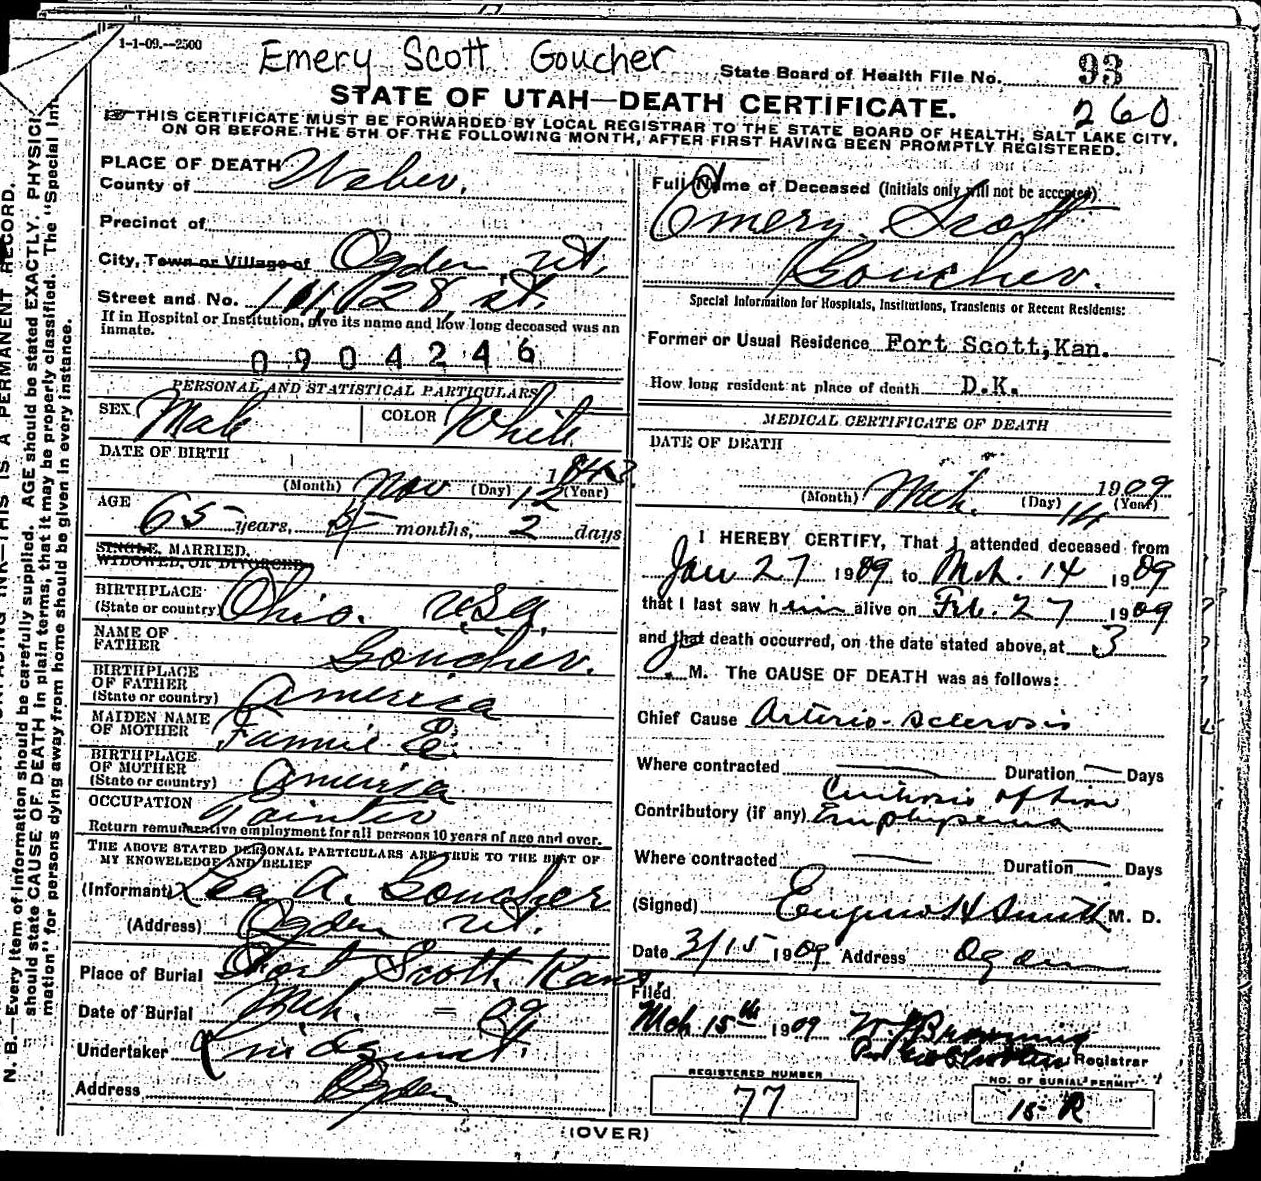 1-1-09.--2500
Emery Scott Goucher
State Board of Health File No. 93
260
STATE OF UTAH—DEATH CERTIFICATE.
THIS CERTIFICATE MUST BE FORWARDED BY LOCAL REGISTRAR TO THE STATE BOARD OF HEALTH, SALT LAKE CITY,
ON OR BEFORE THE 5TH OF THE FOLLOWING MONTH, AFTER FIRST HAVING BEEN PROMPTLY REGISTERED.
PLACE OF DEATH
County of Weber.
Precinct of
City, Town or Village of Ogden, Ut.
Street and No. 28, st.
If in Hospital or Institution, give its name and how long deceased was an
inmate.
0904246
PERSONAL AND STATISTICAL PARTICULARS
SEX Male COLOR White
DATE OF BIRTH
(Month) Nov (Day) 12 (Year) 1843
AGE 65 years, 5 months, 2 days
SINGLE, MARRIED,
WIDOWED, OR DIVORCED
BIRTHPLACE
(State or country) Ohio. USA.
NAME OF
FATHER Goucher.
BIRTHPLACE
OF FATHER
(State or country) America
MAIDEN NAME
OF MOTHER Fannie E.
BIRTHPLACE
OF MOTHER
(State or country) America
OCCUPATION Painter
Return remunerative employment for all persons 10 years of age and over.
THE ABOVE STATED PERSONAL PARTICULARS ARE TRUE TO THE BEST OF
MY KNOWLEDGE AND BELIEF
(Informant) Lea A. Goucher
(Address) Ogden Ut.
Place of Burial Fort Scott, Kans.
Date of Burial Mch. = 09
Undertaker Lindquist.
Address Ogden
Full Name of Deceased (Initials only will not be accepted)
Emery Scott
Goucher.
Special Information for Hospitals, Institutions, Transients or Recent Residents:
Former or Usual Residence Fort Scott, Kan.
How long resident at place of death D.K.
MEDICAL CERTIFICATE OF DEATH
DATE OF DEATH
(Month) Mch. (Day) 14 (Year) 1909
I HEREBY CERTIFY, That I attended deceased from
Jan 27 1909 to Mch. 14 1909
that I last saw him alive on Feb. 27 1909
and that death occurred, on the date stated above, at 3
M. The CAUSE OF DEATH was as follows:
Chief Cause Arterio-sclerosis
Where contracted Duration Days
Cirrhosis of Liver
Contributory (if any) Emphysema
Where contracted Duration Days
(Signed) Eugene H Smith M. D.
Date 3/15 1909 Address Ogden
Filed
Mch 15th 1909
Registrar
REGISTERED NUMBER
77
NO. OF BURIAL PERMIT
15-R
(OVER)
N. B.—Every item of information should be carefully supplied. AGE should be stated EXACTLY. PHYSICI
should state CAUSE OF DEATH in plain terms, that it may be properly classified. The "Special Inf
mation" for persons dying away from home should be given in every instance.
INK—THIS IS A PERMANENT RECORD.